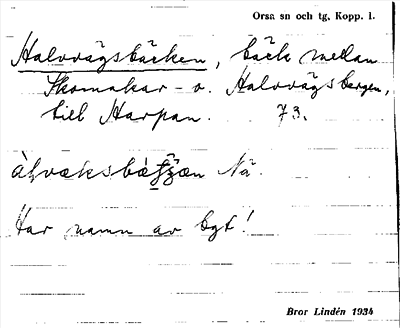 Orsa sn och tg. Kopp. l.
Halvvägsbäcken, bäck mellan
Skomakar- o. Halvvägsbergen,
till Harpan. 73.
Nä.
Har namn av bgt!
Bror Lindén 1934